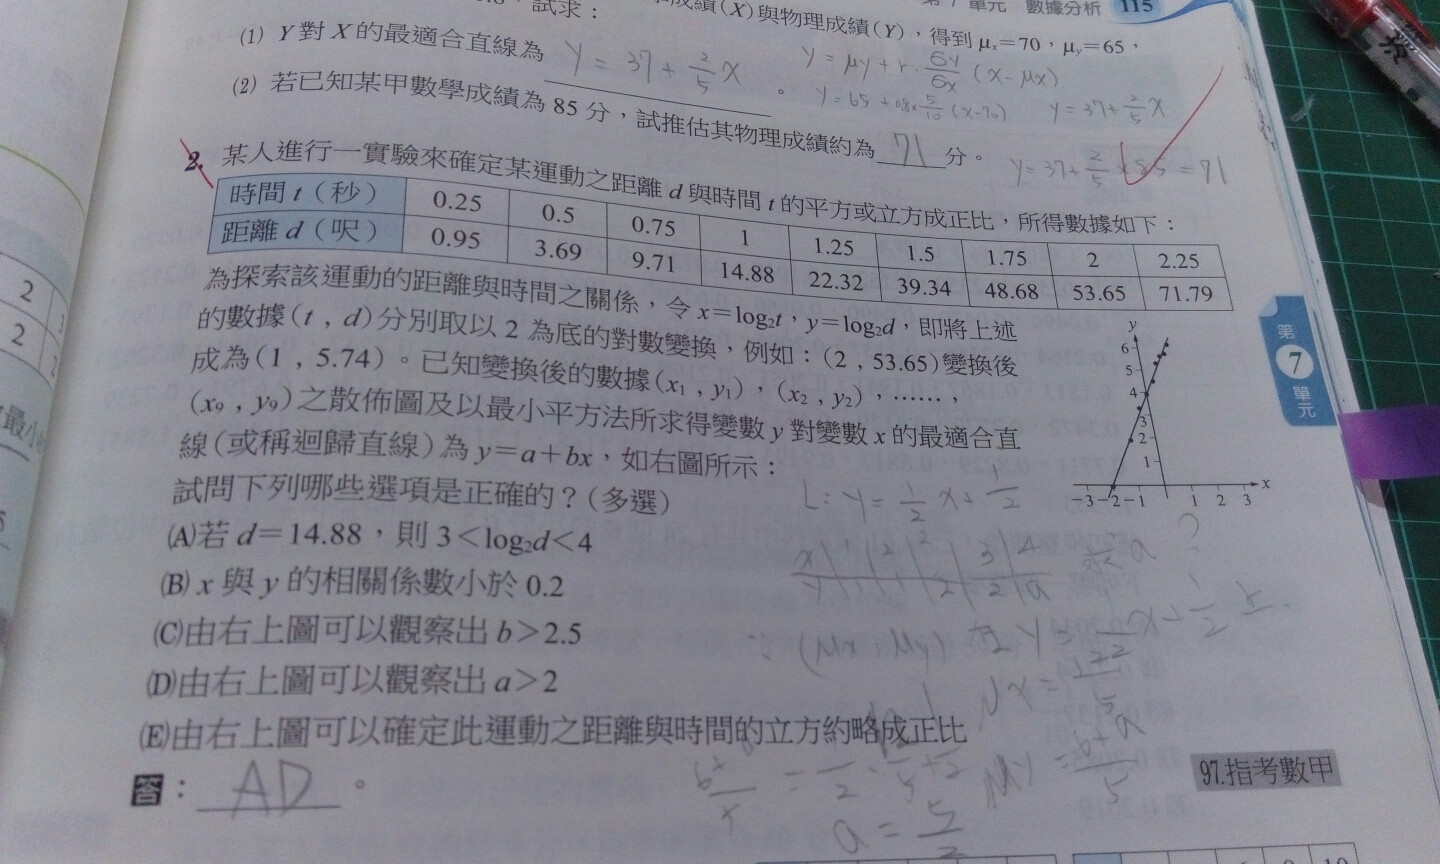 單元 數據分析 115
成績(X)與物理成績(Y),得到μx=70,μy=65,
試求:
(1) Y對X的最適合直線為 y = 37 + 2/5 x 。
y = μy + r · σy/σx (x − μx)
y = 65 + 0.8× 5/10 (x−70) y = 37 + 2/5 x
(2) 若已知某甲數學成績為85分,試推估其物理成績約為 71 分。
y = 37 + 2/5 × 85 = 71
2. 某人進行一實驗來確定某運動之距離d與時間t的平方或立方成正比,所得數據如下:
時間t(秒) 0.25 0.5 0.75 1 1.25 1.5 1.75 2 2.25
距離d(呎) 0.95 3.69 9.71 14.88 22.32 39.34 48.68 53.65 71.79
為探索該運動的距離與時間之關係,令x=log₂t,y=log₂d,即將上述
的數據(t,d)分別取以2為底的對數變換,例如:(2,53.65)變換後
成為(1,5.74)。已知變換後的數據(x₁,y₁),(x₂,y₂),……,
(x₉,y₉)之散佈圖及以最小平方法所求得變數y對變數x的最適合直
線(或稱迴歸直線)為y=a+bx,如右圖所示:
試問下列哪些選項是正確的?(多選)
y
6
5
4
3
2
1
−3 −2 −1 1 2 3 x
第
7
單元
L: y = 1/2 x + 1/2
求a?
(A)若d=14.88,則3<log₂d<4
(B) x與y的相關係數小於0.2
(C)由右上圖可以觀察出b>2.5
(D)由右上圖可以觀察出a>2
(E)由右上圖可以確定此運動之距離與時間的立方約略成正比
答: AD 。
97.指考數甲